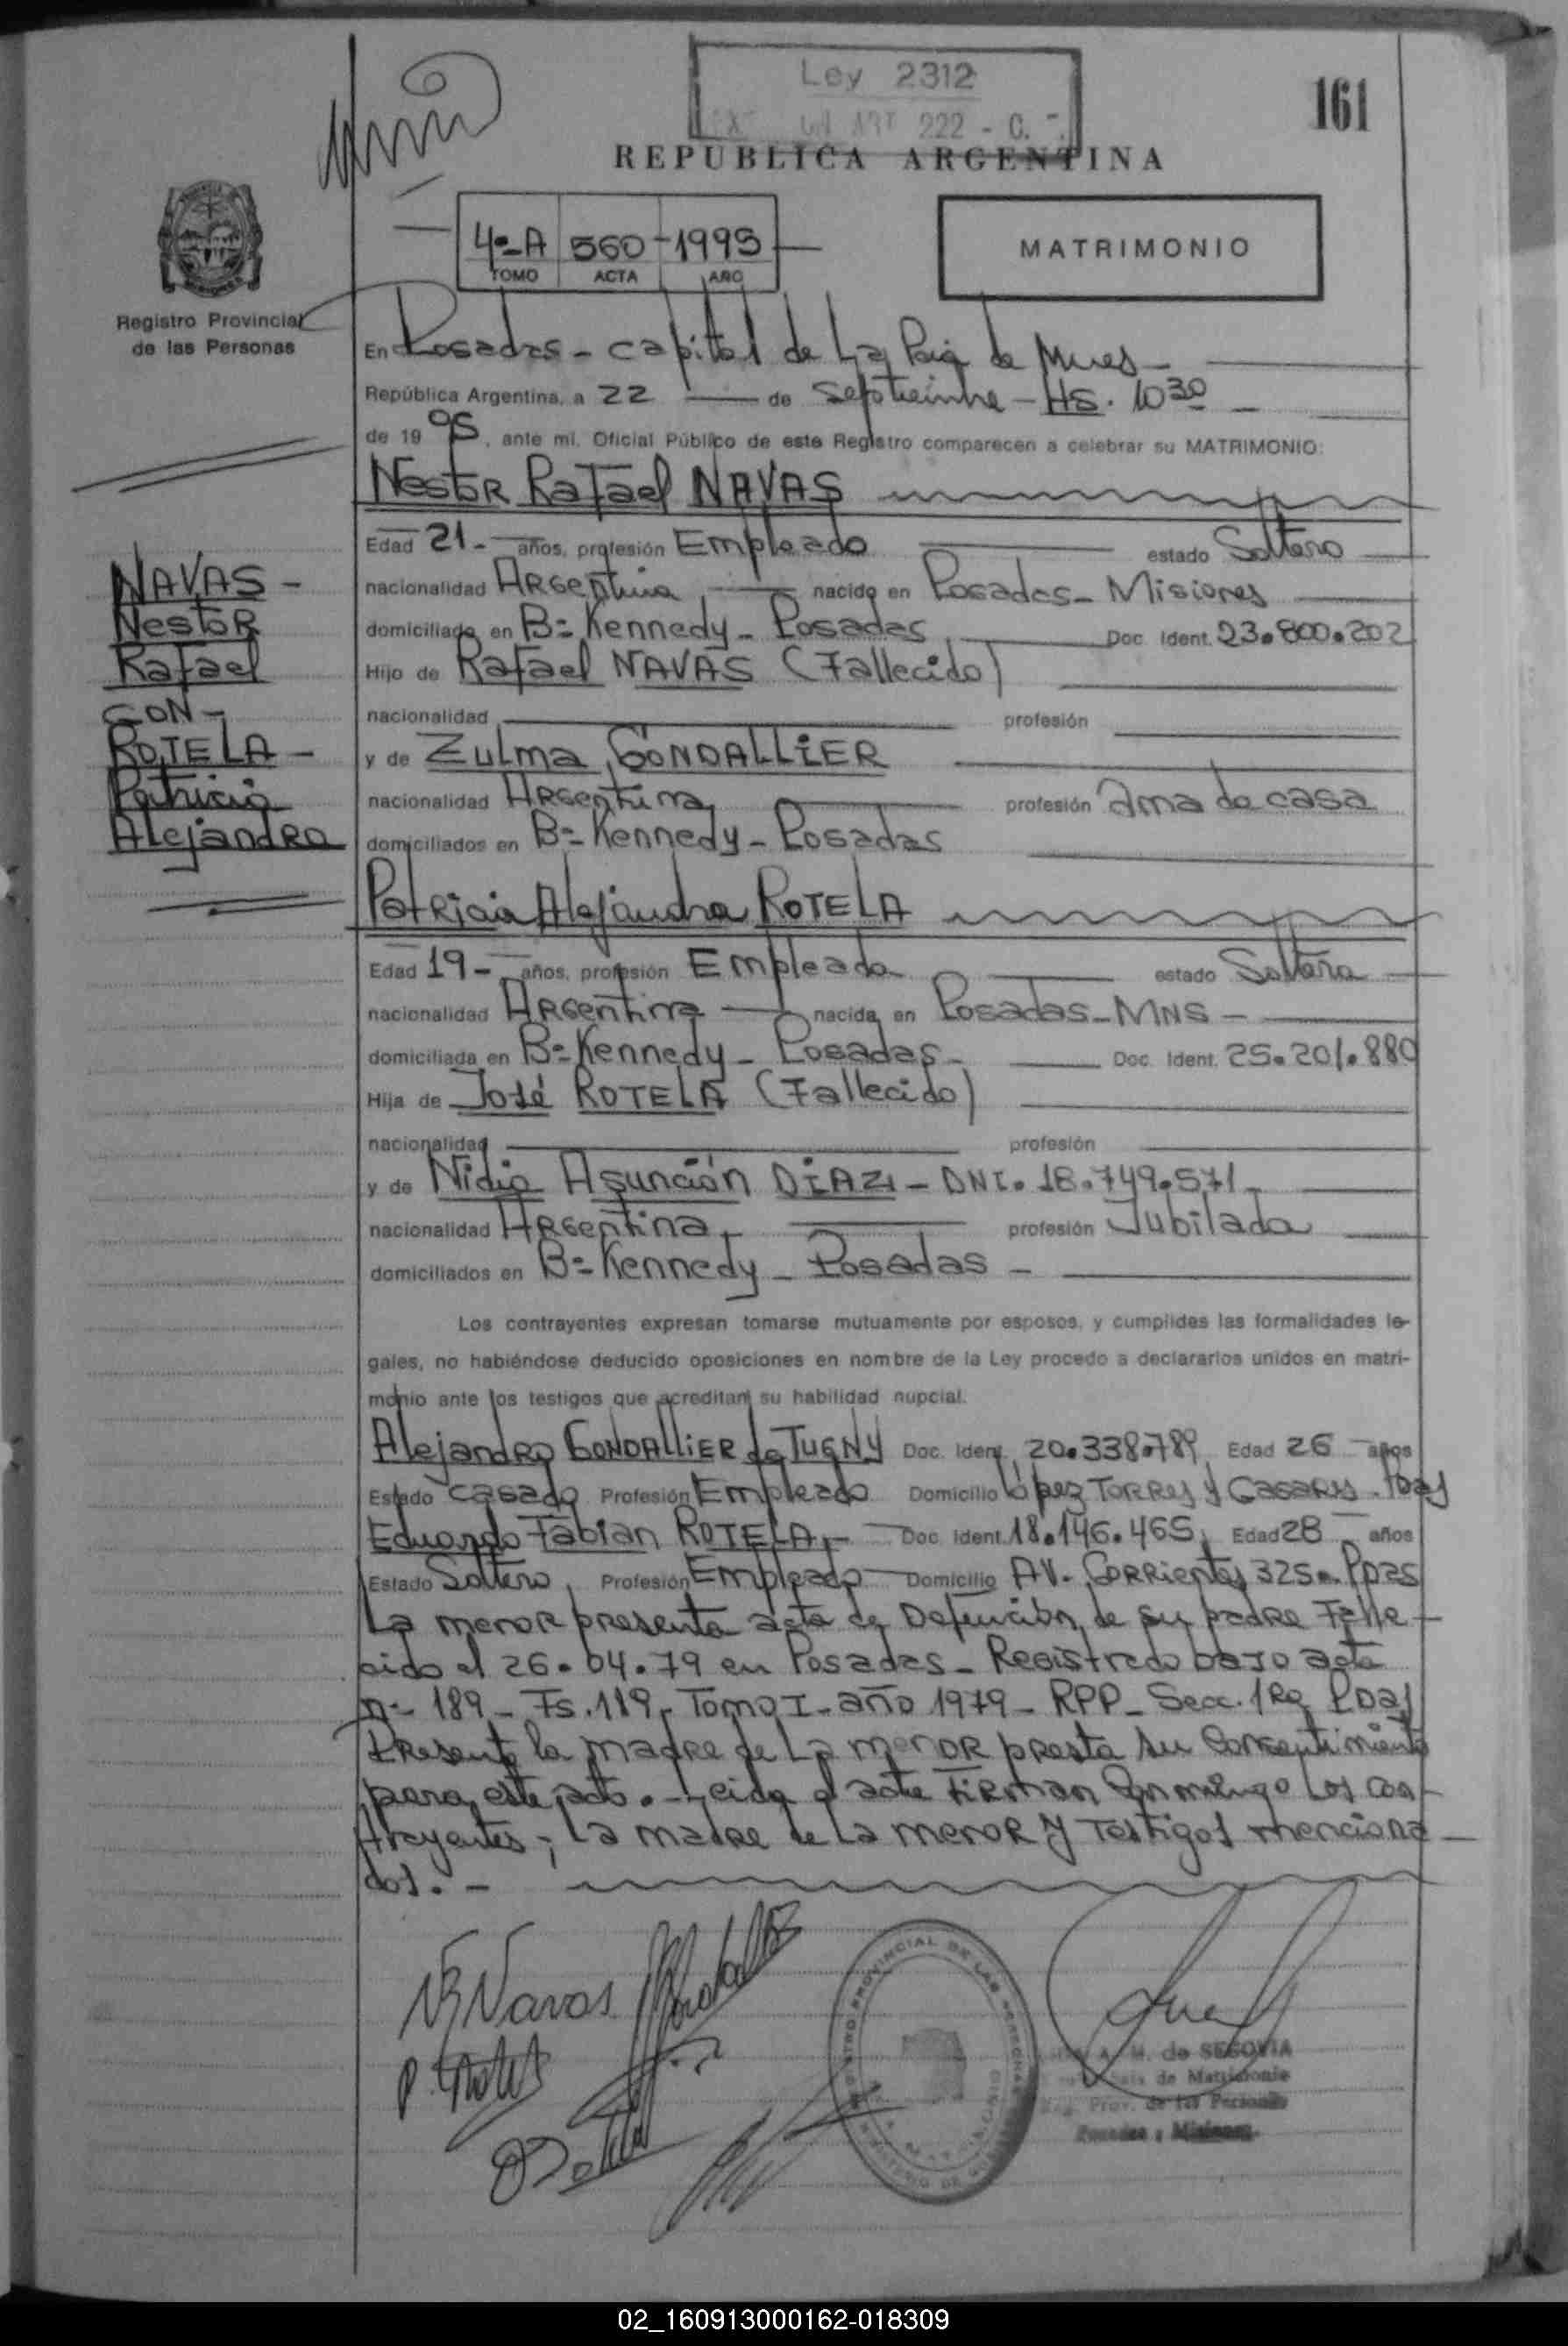 Ley 2312
222 - C.
161
REPUBLICA ARGENTINA
4º-A 560 - 1995
TOMO ACTA AÑO
MATRIMONIO
Registro Provincial
de las Personas
En Posadas - capital de La Pcia de Mnes -
República Argentina, a 22 de Septiembre - HS. 10 30 -
de 19 95, ante mi, Oficial Público de este Registro comparecen a celebrar su MATRIMONIO:
Nestor Rafael NAVAS
Edad 21 - años, profesión Empleado estado Soltero
nacionalidad Argentina nacido en Posadas - Misiones
domiciliado en Bº Kennedy - Posadas Doc. Ident. 23.800.202
Hijo de Rafael NAVAS (Fallecido)
nacionalidad profesión
y de Zulma GONDALLIER
nacionalidad Argentina profesión Ama de casa
domiciliados en Bº Kennedy - Posadas
NAVAS -
Nestor
Rafael
CON -
ROTELA -
Patricia
Alejandra
Patricia Alejandra ROTELA
Edad 19 - años, profesión Empleada estado Soltera
nacionalidad Argentina nacida en Posadas - MNS -
domiciliada en Bº Kennedy - Posadas - Doc. Ident. 25.201.880
Hija de José ROTELA (Fallecido)
nacionalidad profesión
y de Nidia Asunción DIAZ - DNI. 18.749.571 -
nacionalidad Argentina - profesión Jubilada
domiciliados en Bº Kennedy - Posadas -
Los contrayentes expresan tomarse mutuamente por esposos, y cumplidas las formalidades le-
gales, no habiéndose deducido oposiciones en nombre de la Ley procedo a declararlos unidos en matri-
monio ante los testigos que acreditan su habilidad nupcial.
Alejandro GONDALLIER de TUGNY Doc. Ident. 20.338.789 Edad 26 años
Estado casado Profesión Empleado Domicilio López Torres y Casares - Pdas
Eduardo Fabian ROTELA - Doc. Ident. 18.146.465 Edad 28 años
Estado Soltero, Profesión Empleado Domicilio AV. Corrientes 325 - Pdas
La menor presenta acta de Defunción de su padre Falle-
cido el 26.04.79 en Posadas - Registrado bajo acta
nº 189 - Fs. 119 - Tomo I - año 1979 - RPP - Secc. 1ra Pdas
Presente la madre de La menor presta su Consentimiento
para este acto. - Leida el acta Firman Conmigo los con-
trayentes, la madre de la menor y Testigos menciona-
dos. -
N R Navas
P. Rotela
M. de SEGOVIA
de Matrimonio
Prov. de las Personas
Posadas - Misiones
02_160913000162-018309